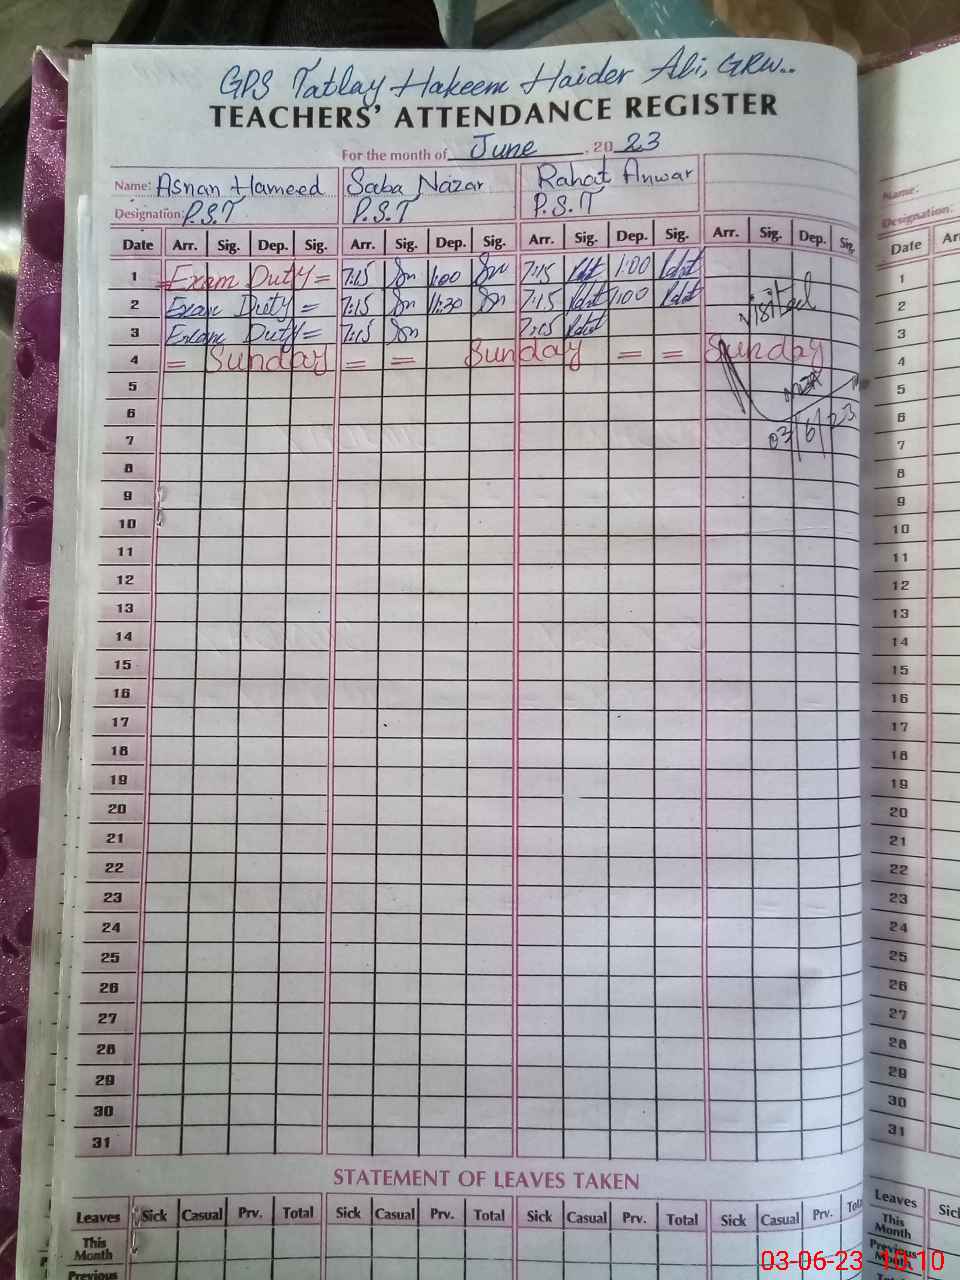 GPS Tatlay Hakeem Haider Ali, GRW..
TEACHERS' ATTENDANCE REGISTER
For the month of June 2023
Name: Asnan Hameed Saba Nazar Rahat Anwar
Designation: P.S.T P.S.T P.S.T
Date Arr. Sig. Dep. Sig. Arr. Sig. Dep. Sig. Arr. Sig. Dep. Sig. Arr. Sig. Dep. Sig.
1 Exam Duty = 7:15 1:00 7:15 1:00
2 Exam Duty = 7:15 11:30 7:15 1:00
visited
3 Exam Duty = 7:15 7:15
4 = Sunday = = Sunday = = Sunday
5
6
03/6/23
7
8
9
10
11
12
13
14
15
16
17
18
19
20
21
22
23
24
25
26
27
28
29
30
31
STATEMENT OF LEAVES TAKEN
Leaves Sick Casual Prv. Total Sick Casual Prv. Total Sick Casual Prv. Total Sick Casual Prv.
This Month
Previous
Name:
Designation:
Date
1
2
3
4
5
6
7
8
9
10
11
12
13
14
15
16
17
18
19
20
21
22
23
24
25
26
27
28
29
30
31
Leaves
This Month
Previous
03-06-23 10:10